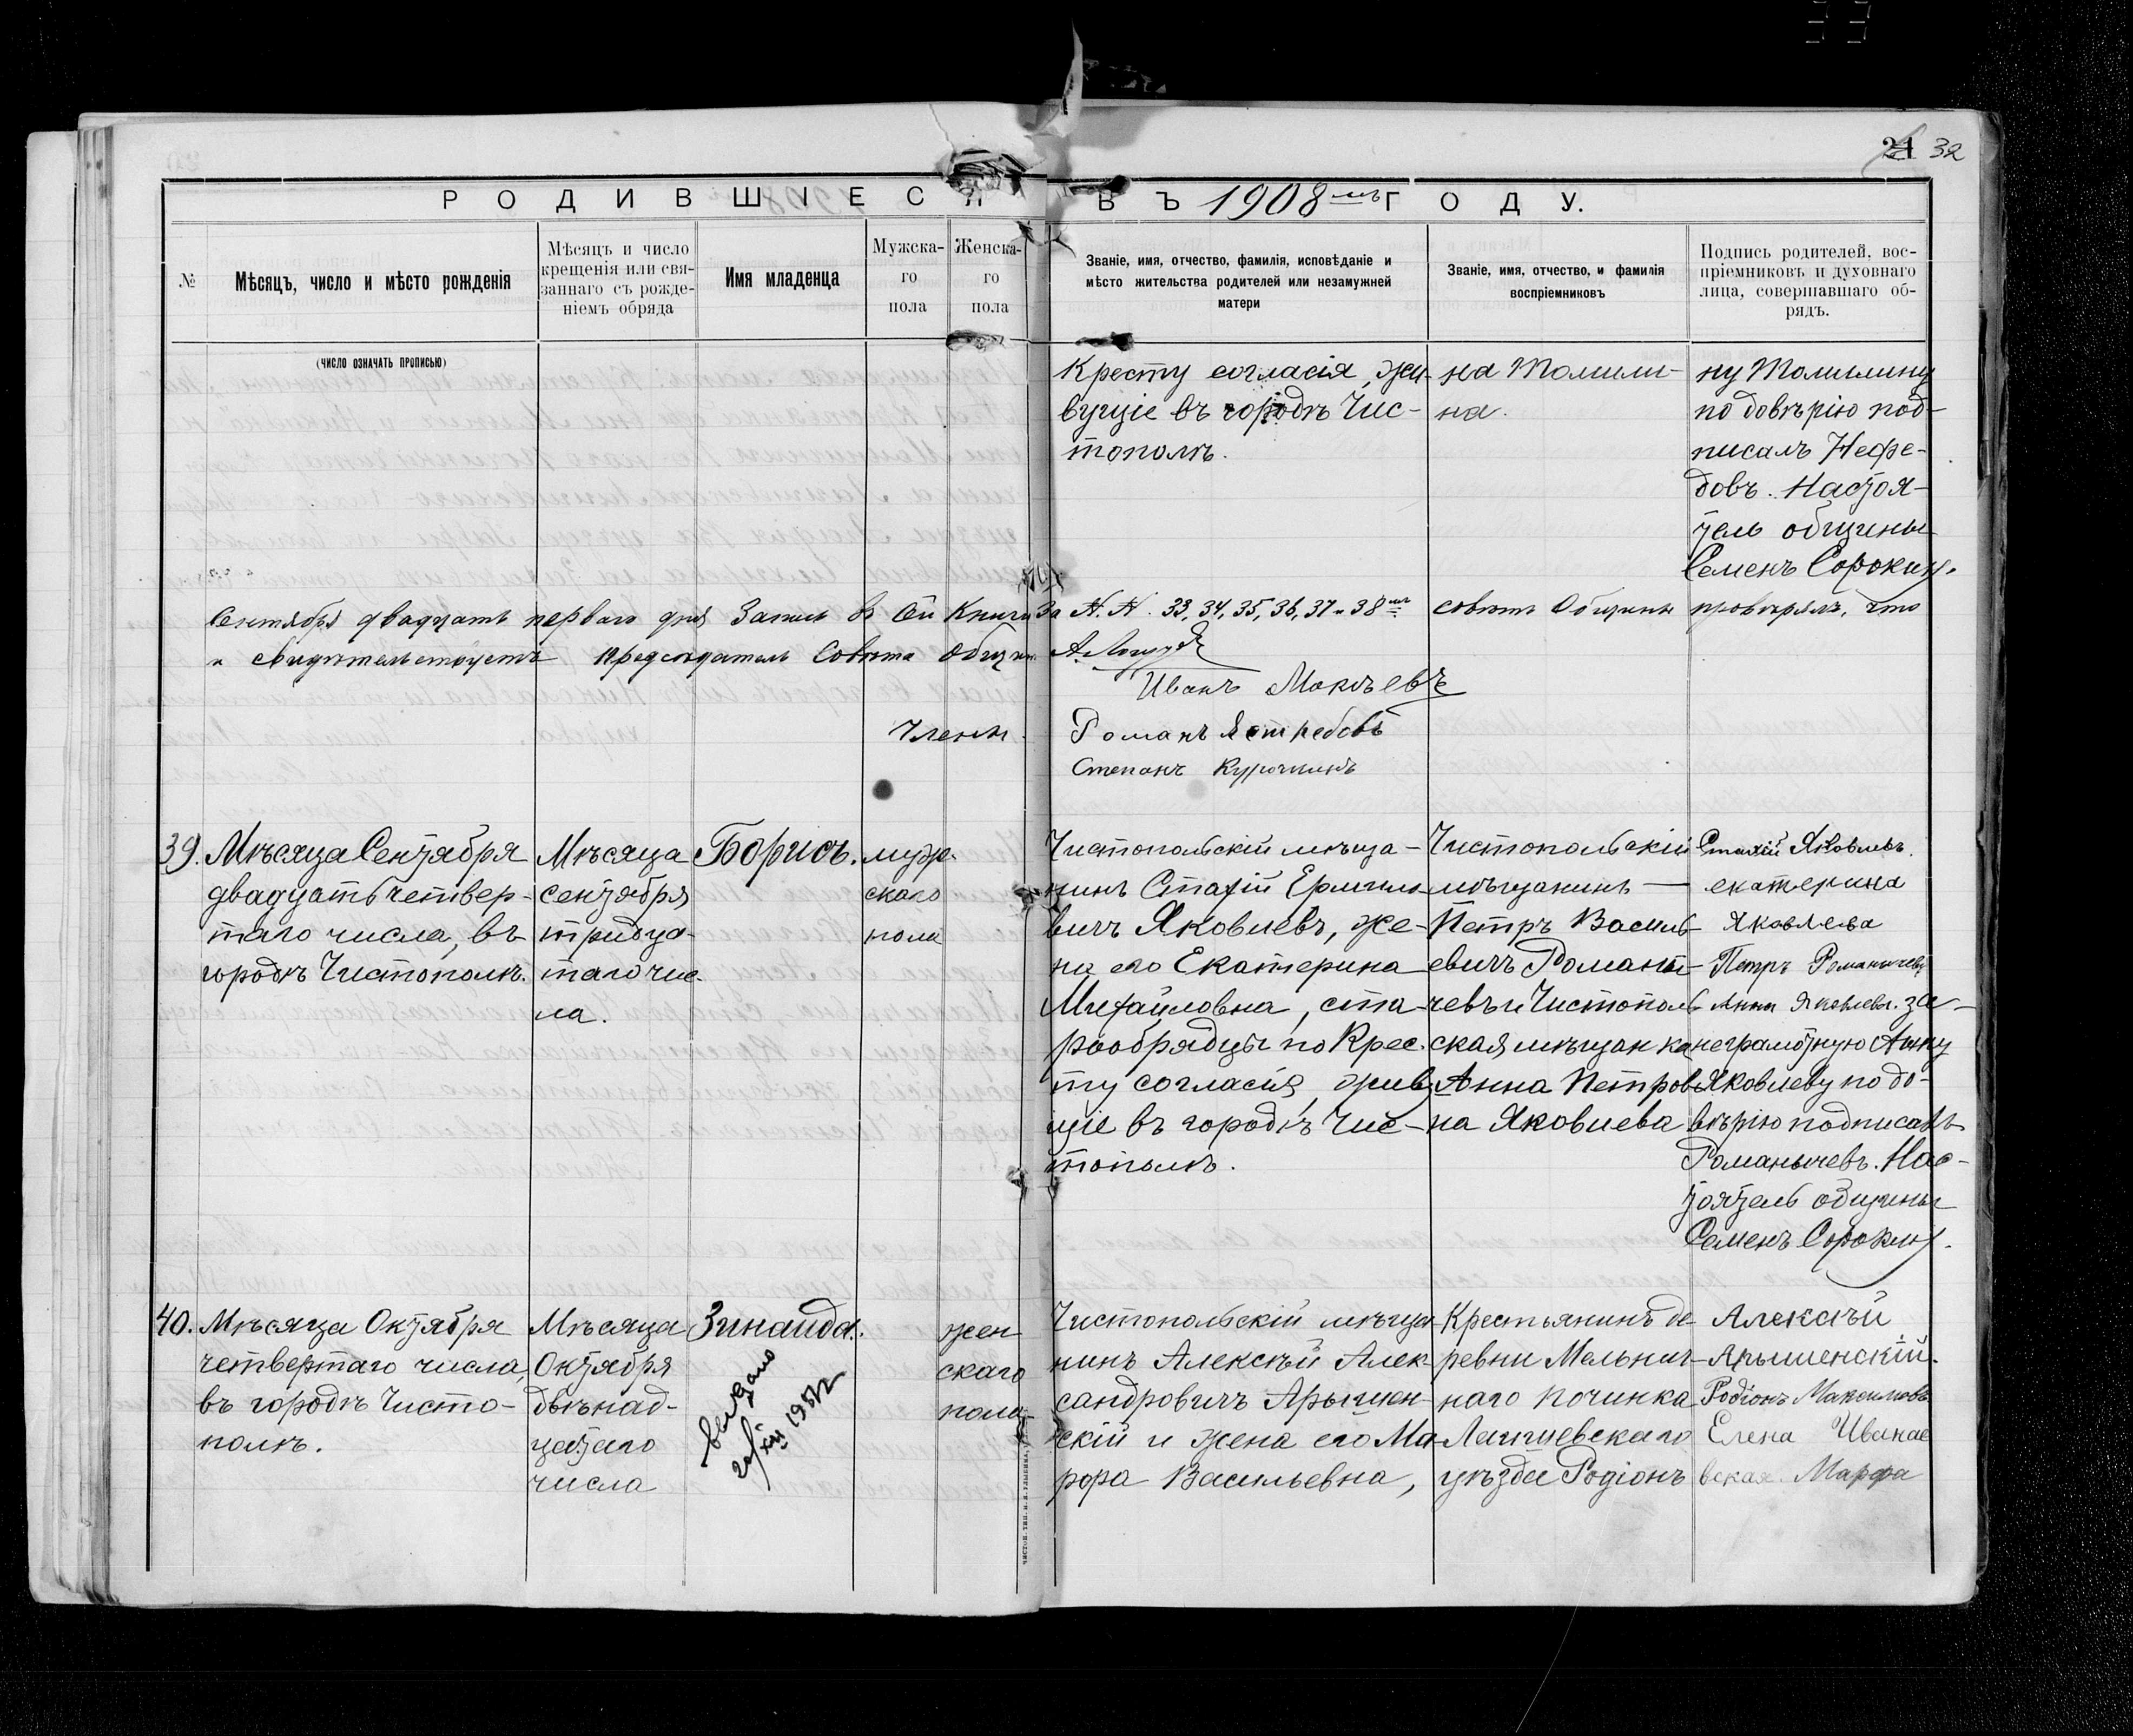 21 32
РОДИВШІЕСЯ ВЪ 1908 мъ ГОДУ.
№
Мѣсяцъ, число и мѣсто рожденія
Мѣсяцъ и число
крещенія или свя-
заннаго съ рожде-
ніемъ обряда
Имя младенца
Мужска-
го
пола
Женска-
го
пола
Званіе, имя, отчество, фамилія, исповѣданіе и
мѣсто жительства родителей или незамужней
матери
Званіе, имя, отчество, и фамилія
воспріемниковъ
Подпись родителей, вос-
пріемниковъ и духовнаго
лица, совершавшаго об-
рядъ.
(число означать прописью)
Кресту согласія, жи-
вущіе въ городѣ Чис-
тополѣ.
на Томили-
на.
ну Томилину
по довѣрію под-
писалъ Нефе-
довъ. Настоя-
тель общины
Семенъ Сорокин.
Сентября двадцать перваго дня Запись в сей Книги За N.N. 33, 34, 35, 36, 37 и 38 мъ совѣтъ Общины провѣрялъ, что
и свидѣтельствуетъ Председатель Совѣта Общины
Иванъ Мокѣевъ
Члены. Романъ Ястребовъ
Степанъ Курочкинъ
39.
Мѣсяца Сентября
двадцать четвер-
таго числа, въ
городѣ Чистополѣ.
Мѣсяца
сентября
тридца-
таго чис-
ла.
Борисъ.
муж-
скаго
пола
Чистопольскій мѣща-
нинъ Стахій Ермило-
вичъ Яковлевъ, же-
на его Екатерина
Михайловна, ста-
рообрядцы по Крес-
ту согласія, живу
щіе въ городѣ Чис-
тополѣ.
Чистопольскій
мѣщанинъ —
Петръ Василь-
евичъ Романы-
чевъ и Чистополь-
ская мѣщанка
Анна Петров-
на Яковлева
Стахій Яковлевъ.
екатерина
Яковлева
Петръ Романычевъ
Анна Яковлева. за-
неграмотную Анну
Яковлеву по до-
вѣрію подписалъ
Романычевъ. Нас-
тоятель общины
Семенъ Сорокин.
40.
Мѣсяца Октября
четвертаго числа,
въ городѣ Чисто-
полѣ.
Мѣсяца
Октября
двѣнад-
цатаго
числа
Зинаида.
выдано
XII 1951г
жен-
скаго
пола
Чистопольскій мѣща
нинъ Алексѣй Алек-
сандровичъ Арышен-
скій и жена его Ма-
рфа Васильевна,
Крестьянинъ де-
ревни Мельнич-
наго Починка
Лаишевскаго
уѣзда Родіонъ
Алексѣй
Арышенскій.
Родіонъ Максимовъ
Елена Иванае
вская. Марфа
чистоп. тип.